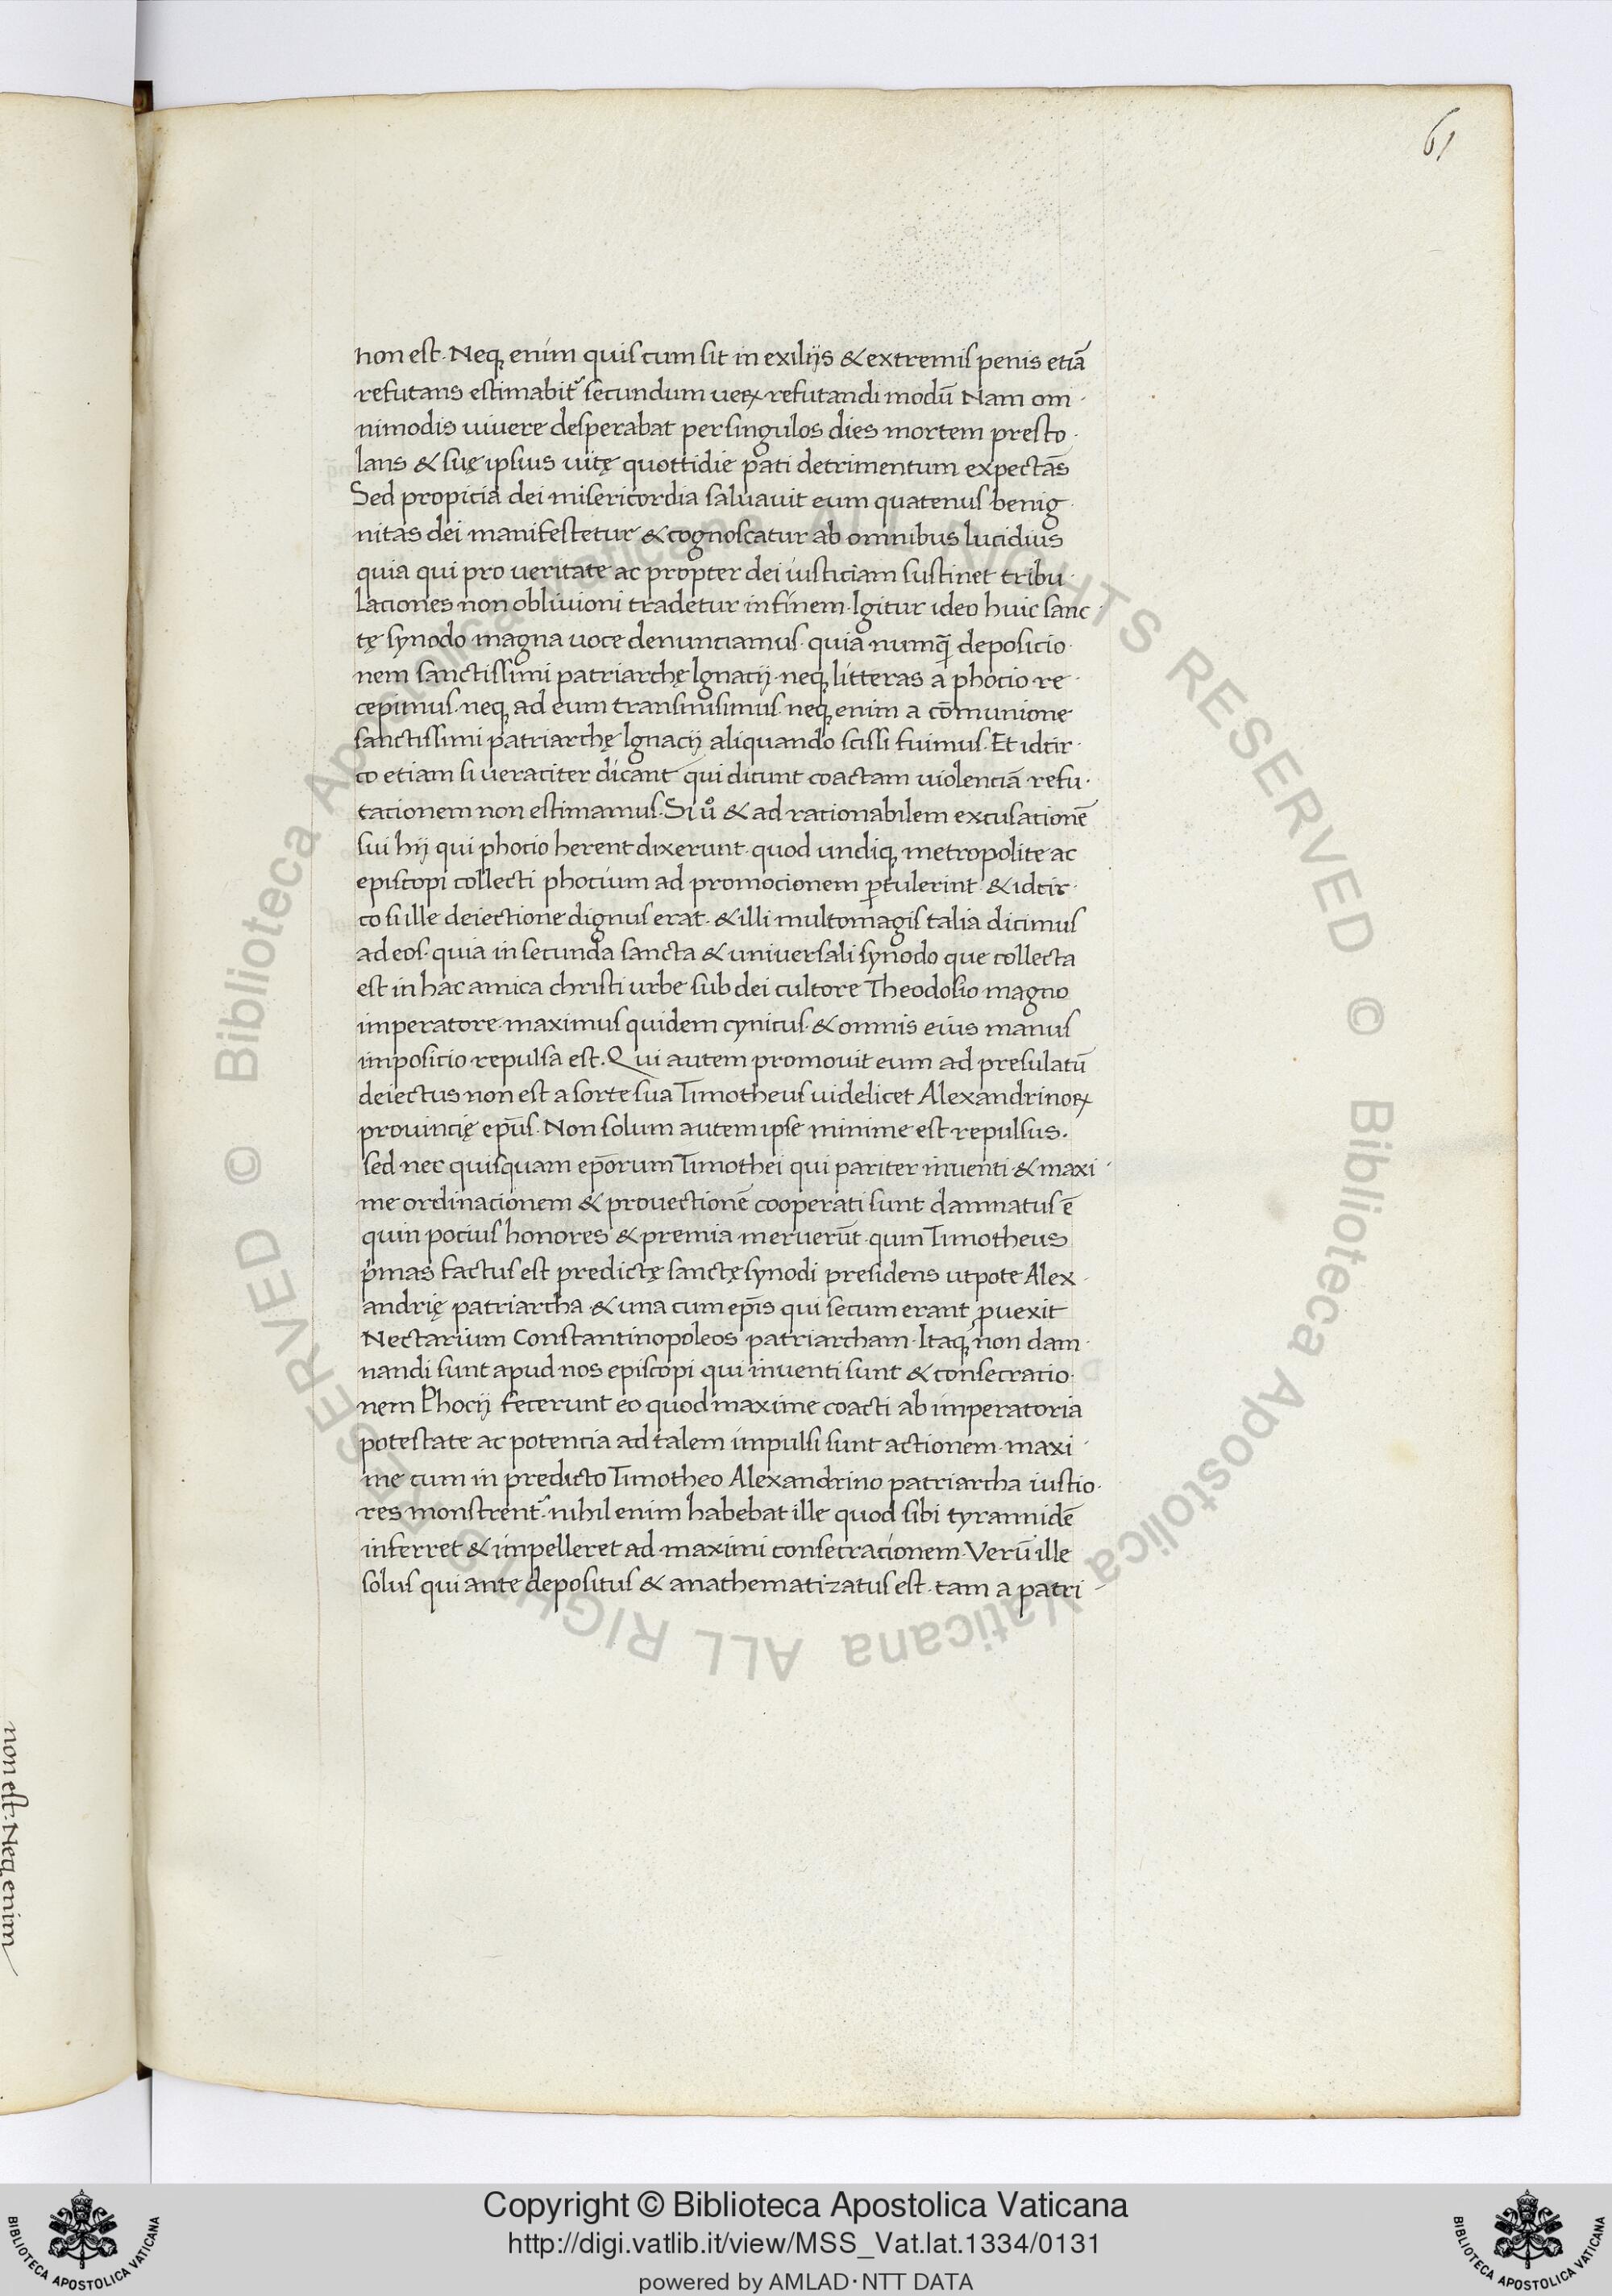 61
non est. Neq; enim quis cum sit in exiliis & extremis penis etiā
refutans estimabit᷑ secundum ueꝝ refutandi modū Nam om
nimodis uiuere desperabat per singulos dies mortem presto
lans & suę ipsius uitę quottidie pati detrimentum expectās
Sed propicia dei misericordia saluauit eum quatenus benig
nitas dei manifestetur & cognoscatur ab omnibus lucidius
quia qui pro ueritate ac propter dei iusticiam sustinet tribu
laciones non obliuioni tradetur in finem. Igitur ideo huic sanc
tę synodo magna uoce denunciamus. quia numq̄ deposicio
nem sanctissimi patriarchę Ignacij. neq; litteras a phocio re
cepimus. neq; ad eum transmisimus. neq; enim a cōmunione
sanctissimi patriarchę Ignacij aliquando scissi fuimus. Et idcir
co etiam si ueraciter dicant qui dicunt coactam uiolenciā refu
tacionem non estimamus. Si uͦ & ad rationabilem excusationē
sui hij qui phocio herent dixerunt. quod undiq; metropolite ac
episcopi collecti phocium ad promocionem ꝑtulerint & idcir
co si ille deiectione dignus erat. & illi multomagis talia dicimus
ad eos. quia in secunda sancta & uniuersali synodo que collecta
est in hac amica christi urbe sub dei cultore Theodosio magno
imperatore. maximus quidem cynicus. & omnis eius manus
imposicio repulsa est. Qui autem promouit eum ad presulatū
deiectus non est a sorte sua Timotheus uidelicet Alexandrinoꝝ
prouincię ep̄us. Non solum autem ipse minime est repulsus.
sed nec quisquam ep̄orum Timothei qui pariter inuenti & maxi
me ordinacionem & prouectionē cooperati sunt damnatus ē
quin pocius honores & premia meruerūt. quin Timotheus
p̄mas factus est predictę sanctę synodi presidens utpote Alex
andrię patriarcha & una cum ep̄is qui secum erant ꝓuexit
Nectarium Constantinopoleos patriarcham. Itaq; non dam
nandi sunt apud nos episcopi qui inuenti sunt & consecratio
nem Phocij fecerunt eo quod maxime coacti ab imperatoria
potestate ac potencia ad talem impulsi sunt actionem. maxi
me cum in predicto Timotheo Alexandrino patriarcha iustio
res monstrent᷑. nihil enim habebat ille quod sibi tyrannidē
inferret & impelleret ad maximi consecracionem. Verū ille
solus qui ante depositus & anathematizatus est. tam a patri
non est. Neq; enim
© Biblioteca Apostolica Vaticana ALL RIGHTS RESERVED © Biblioteca Apostolica Vaticana ALL RIGHTS RESERVED
Copyright © Biblioteca Apostolica Vaticana
http://digi.vatlib.it/view/MSS_Vat.lat.1334/0131
powered by AMLAD·NTT DATA
BIBLIOTECA APOSTOLICA VATICANA
BIBLIOTECA APOSTOLICA VATICANA